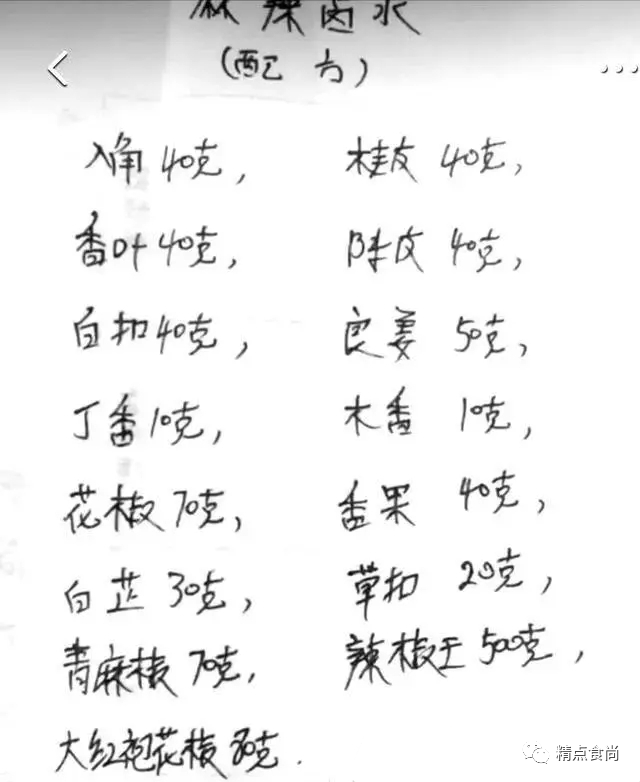 麻辣卤水
(配方)
八角 40克, 桂皮 40克,
香叶 40克, 陈皮 40克,
白扣 40克, 良姜 50克,
丁香 10克, 木香 10克,
花椒 70克, 香果 40克,
白芷 30克, 草扣 20克,
青麻椒 70克, 辣椒王 500克,
大红袍花椒 80克.
精点食尚